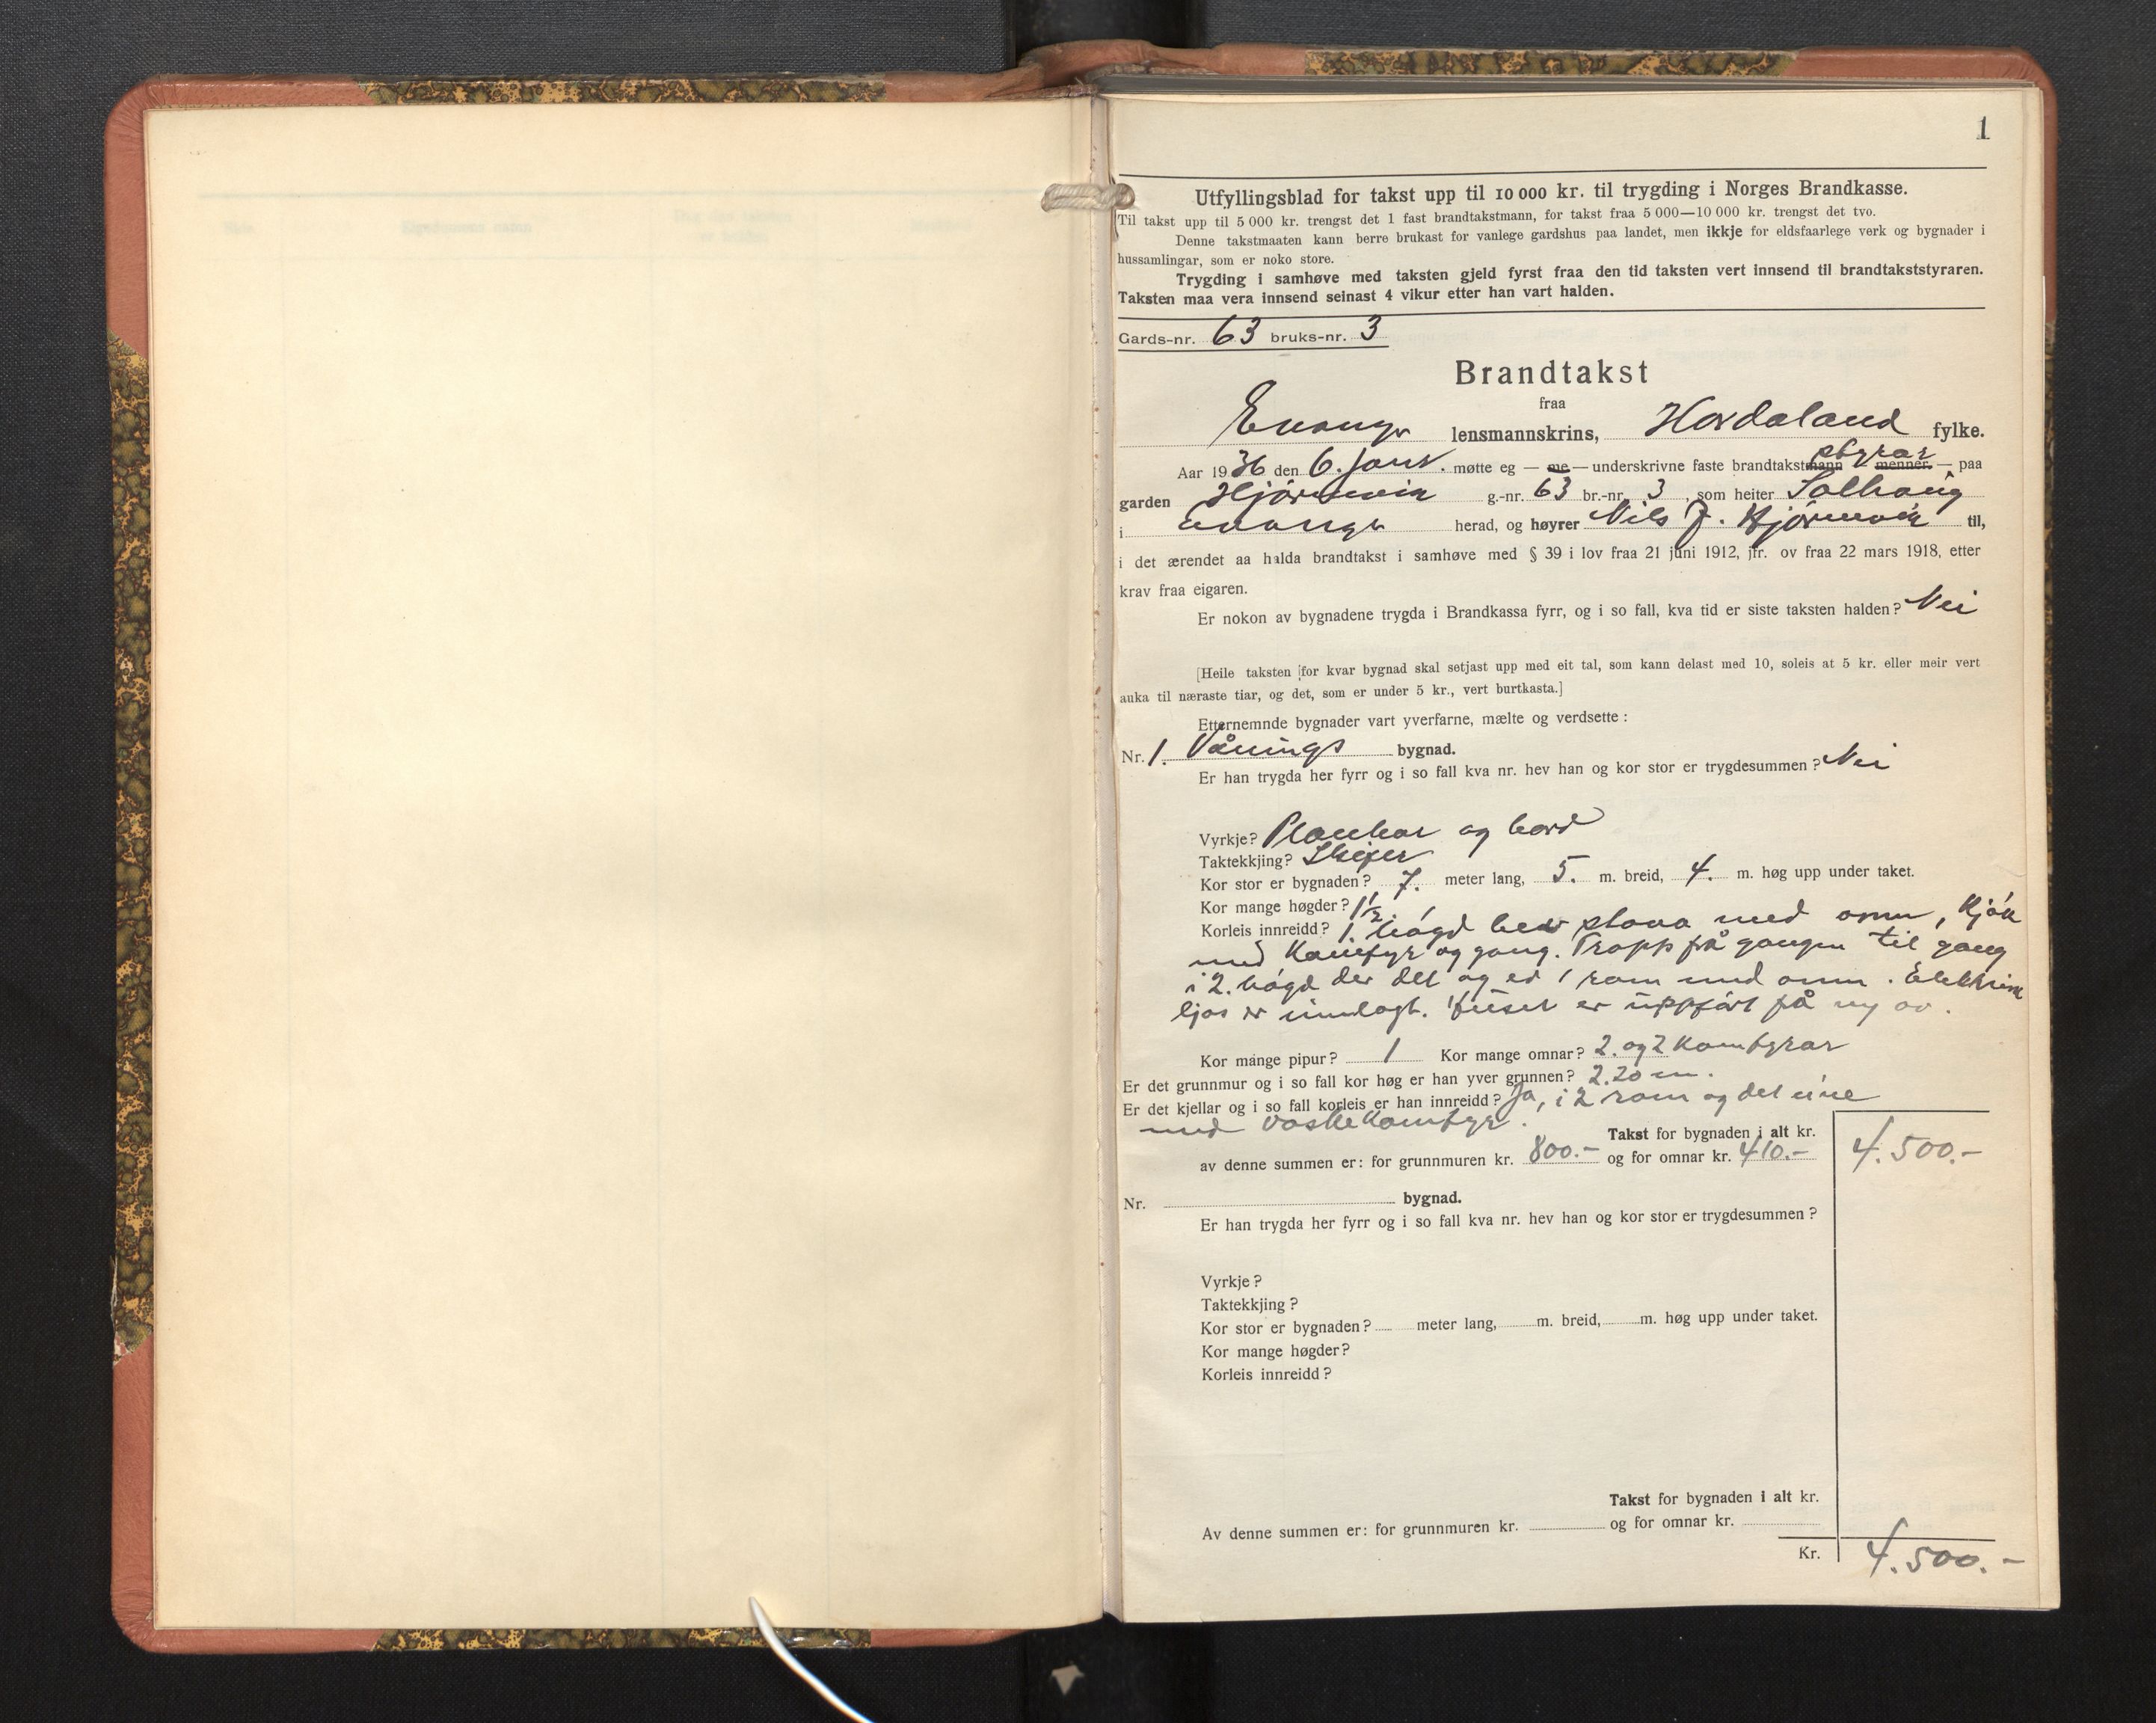 1
Utfyllingsblad for takst upp til 10 000 kr. til trygding i Norges Brandkasse.
Til takst upp til 5 000 kr. trengst det 1 fast brandtakstmann, for takst fraa 5 000—10 000 kr. trengst det tvo.
Denne takstmaaten kann berre brukast for vanlege gardshus paa landet, men ikkje for eldsfaarlege verk og bygnader i
hussamlingar, som er noko store.
Trygding i samhøve med taksten gjeld fyrst fraa den tid taksten vert innsend til brandtakststyraren.
Taksten maa vera innsend seinast 4 vikur etter han vart halden.
Gards-nr. 63 bruks-nr. 3
Brandtakst
fraa
Evanger lensmannskrins, Hordaland fylke.
styrar
Aar 1936 den 6. Jan. møtte eg — me — underskrivne faste brandtakstmann menner. — paa
garden Hjörnevik g.-nr. 63 br.-nr. 3, som heiter Solhaug
i Evanger herad, og høyrer Nils J. Hjörnevik til,
i det ærendet aa halda brandtakst i samhøve med § 39 i lov fraa 21 juni 1912, jfr. ov fraa 22 mars 1918, etter
krav fraa eigaren.
Er nokon av bygnadene trygda i Brandkassa fyrr, og i so fall, kva tid er siste taksten halden? Nei
[Heile taksten for kvar bygnad skal setjast upp med eit tal, som kann delast med 10, soleis at 5 kr. eller meir vert
auka til næraste tiar, og det, som er under 5 kr., vert burtkasta.]
Etternemnde bygnader vart yverfarne, mælte og verdsette:
Nr. 1. Vånings bygnad.
Er han trygda her fyrr og i so fall kva nr. hev han og kor stor er trygdesummen? Nei
Vyrkje? Plankar og bord
Taktekkjing? Skifer
Kor stor er bygnaden? 7. meter lang, 5. m. breid, 4. m. høg upp under taket.
Kor mange høgder? 1 1/2
Korleis innreidd? 1. högd hev stova med omn, kjök
med Komfyr og gang. Trapp på gangen til gang
i 2. högd der det og er 1 rom med omn. Elektrisk
ljos er innlagt. Huset er uppfört på ny av.
Kor mange pipur? 1 Kor mange omnar? 2. og 2 Komfyrar
Er det grunnmur og i so fall kor høg er han yver grunnen? 2.20 m.
Er det kjellar og i so fall korleis er han innreidd? Ja, i 2 rom og det eine
med vaskekomfyr.
Takst for bygnaden i alt kr. 4.500.-
av denne summen er: for grunnmuren kr. 800.- og for omnar kr. 410.-
Nr. bygnad.
Er han trygda her fyrr og i so fall kva nr. hev han og kor stor er trygdesummen?
Vyrkje?
Taktekkjing?
Kor stor er bygnaden? meter lang, m. breid, m. høg upp under taket.
Kor mange høgder?
Korleis innreidd?
Takst for bygnaden i alt kr.
Av denne summen er: for grunnmuren kr. og for omnar kr.
Kr. 4.500.-